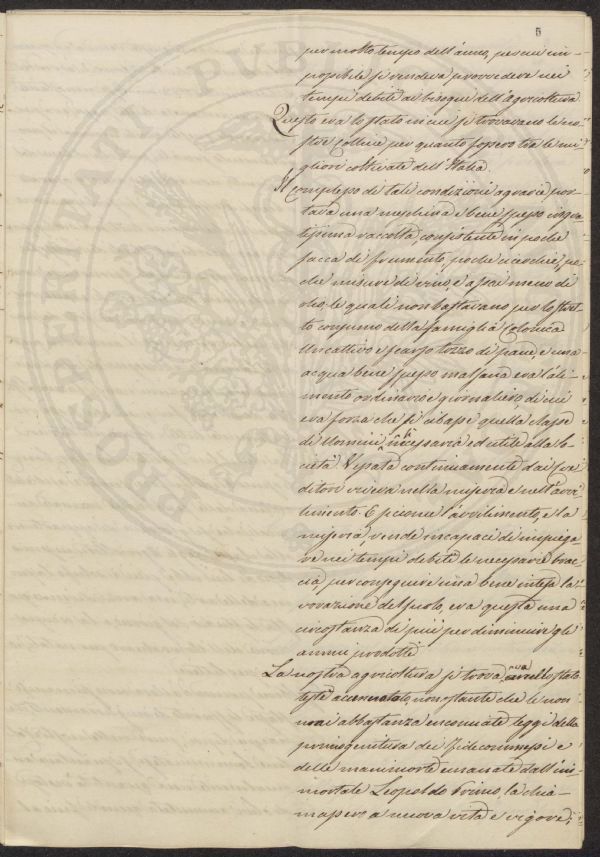 5
per molto tempo dell'anno, per cui im-
possibile si rendeva provvedere nei
tempi debiti ai bisogni dell'Agricoltura
Questo era lo stato in cui si trovavano le no-
stre Colline per quanto fossero tra le mi-
gliori coltivate dell'Italia.
Il complesso di tali condizioni agrarie por-
tava una meschina e bene spesso incqua
tissima raccolta, consistente in poche
sacca di frumento, poche cicerchie, po-
che misure di vino, e assai meno di
olio, le quali non bastavano per lo stret-
to consumo della famiglia Colonica
Un cattivo e scarso tozzo di pane, e una
acqua bene spesso malsana era l'ali-
mento ordinario e giornaliero, di cui
era forza che si cibasse quella classe
di Uomini sì necessaria ed utile alla So-
cietà. Vessata continuamente dai Cre
ditori viveva nella miseria e nell'avvi
limento. E siccome l'avvilimento, e la
miseria, rende incapaci di impiega-
re nei tempi debiti le necessarie brac-
cia, per conseguire una bene intesa la-
vorazione del suolo, era questa una
circostanza di più per diminuire gli
annui prodotti
La nostra agricoltura si trovava nello stato
testè accennato, nonostante che le non
mai abbastanza encomiate leggi della
primogenitura dei Fidecommessi e
delle manimorte emanate dall'im-
mortale Leopoldo Primo, la chia-
massero a nuova vita e vigore;
PROSPERITATI PUBL